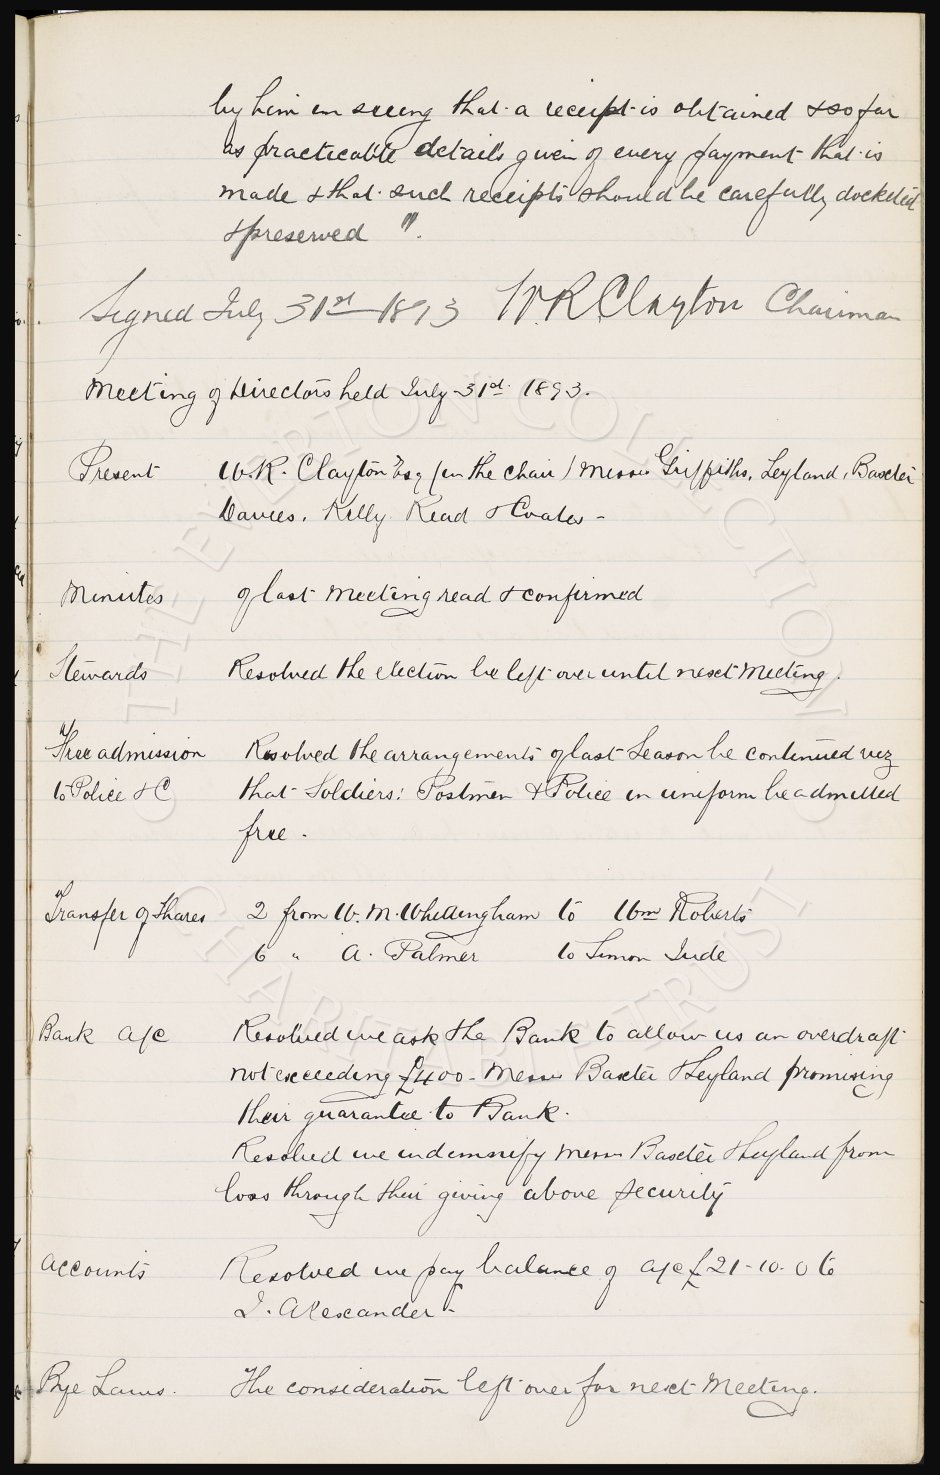 by him in seeing that a receipt is obtained & so far
as practicable details given of every payment that is
made & that such receipts should be carefully docketed
& preserved ".
Signed July 31st 1893 W.R. Clayton Chairman
Meeting of Directors held July 31st 1893.
Present W.R. Clayton Esq (in the chair) Messrs Griffiths, Leyland, Baxter
Davies, Kelly, Read & Coates -
Minutes of last Meeting read & confirmed
Stewards Resolved the election be left over until next Meeting.
Free admission Resolved the arrangements of last Season be continued viz
to Police &C that Soldiers: Postmen & Police in uniform be admitted
free.
Transfer of Shares 2 from W. M. Whittingham to Wm Roberts
6 " A. Palmer to Simon Jude
Bank a/c Resolved we ask the Bank to allow us an overdraft
not exceeding £400 - Messrs Baxter & Leyland promising
their guarantee to Bank.
Resolved we indemnify Messrs Baxter & Leyland from
loss through their giving above security
Accounts Resolved we pay balance of a/c £21-10-0 to
J. Alexander -
Bye Laws. The consideration left over for next Meeting.
THE EVERTON COLLECTION
CHARITABLE TRUST